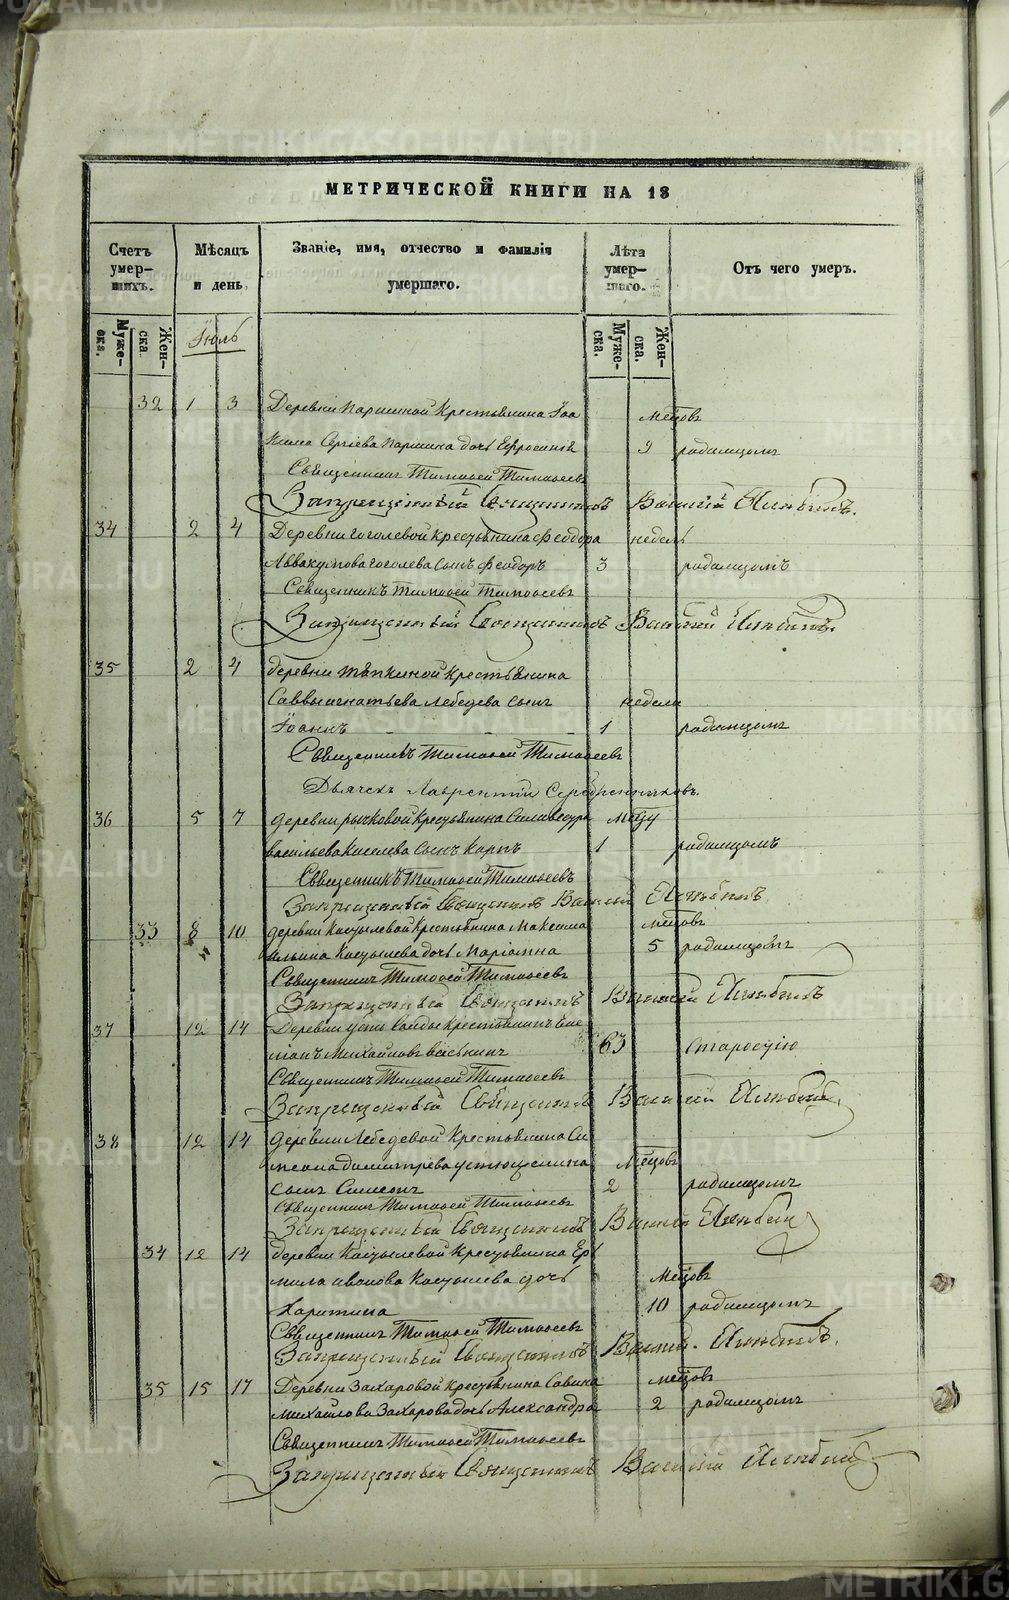 МЕТРИЧЕСКОЙ КНИГИ НА 18
Счетъ умер-шихъ.
Мѣсяцъ и день
Званіе, имя, отчество и фамилія умершаго.
Лѣта умер-шаго.
Отъ чего умеръ.
Муже-ска. Жен-ска.
Муже-ска. Жен-ска.
Іюль
32 1 3 Деревни Паршиной Крестьянина Іоа мѣсцовъ
кима Сергіева Паршина дочь Ефросинія 9 родимцомъ
Священникъ Тимоѳей Тимоѳеевъ
Запрещенный Священникъ Василій
34 2 4 Деревни Гоголевой Крестьянина Феодора недель
Аввакумова Гоголева сынъ Феодоръ 3 родимцомъ
Священникъ Тимоѳей Тимоѳеевъ
Запрещенный Священникъ Василій
35 2 4 деревни Тяпкиной Крестьянина
Саввы Игнатьева Лебедева сынъ неделя
Іоаннъ 1 родимцомъ
Священникъ Тимоѳей Тимоѳеевъ
Дьячекъ Лаврентій Серебренниковъ.
36 5 7 деревни Рычковой Крестьянина Силивестра
Васильева Киселева сынъ Карпъ 1 родимцомъ
Священникъ Тимоѳей Тимоѳеевъ
Запрещенный Священникъ Василій
33 8 10 деревни Костылевой Крестьянина Максима мѣсцовъ
Ильина Костылева дочь Маріанна 5 родимцомъ
Священникъ Тимоѳей Тимоѳеевъ
Запрещенный Священникъ Василій
37 12 14 Деревни Крестьянинъ
Михайловъ Васькинъ 63 старостію
Священникъ Тимоѳей Тимоѳеевъ
Запрещенный Священникъ Василій
38 12 14 деревни Лебедевой Крестьянина Си
меона Димитріева мѣсцовъ
сынъ Симеонъ 2 родимцомъ
Священникъ Тимоѳей Тимоѳеевъ
Запрещенный Священникъ Василій
34 12 14 деревни Костылевой Крестьянина Ер
мила Иванова Костылева дочь мѣсцовъ
Харитина 10 родимцомъ
Священникъ Тимоѳей Тимоѳеевъ
Запрещенный Священникъ Василій
35 15 17 Деревни Захаровой Крестьянина Савина мѣсцовъ
Михайлова Захарова дочь Александра 2 родимцомъ
Священникъ Тимоѳей Тимоѳеевъ
Запрещенный Священникъ Василій
METRIKI.GASO-URAL.RU